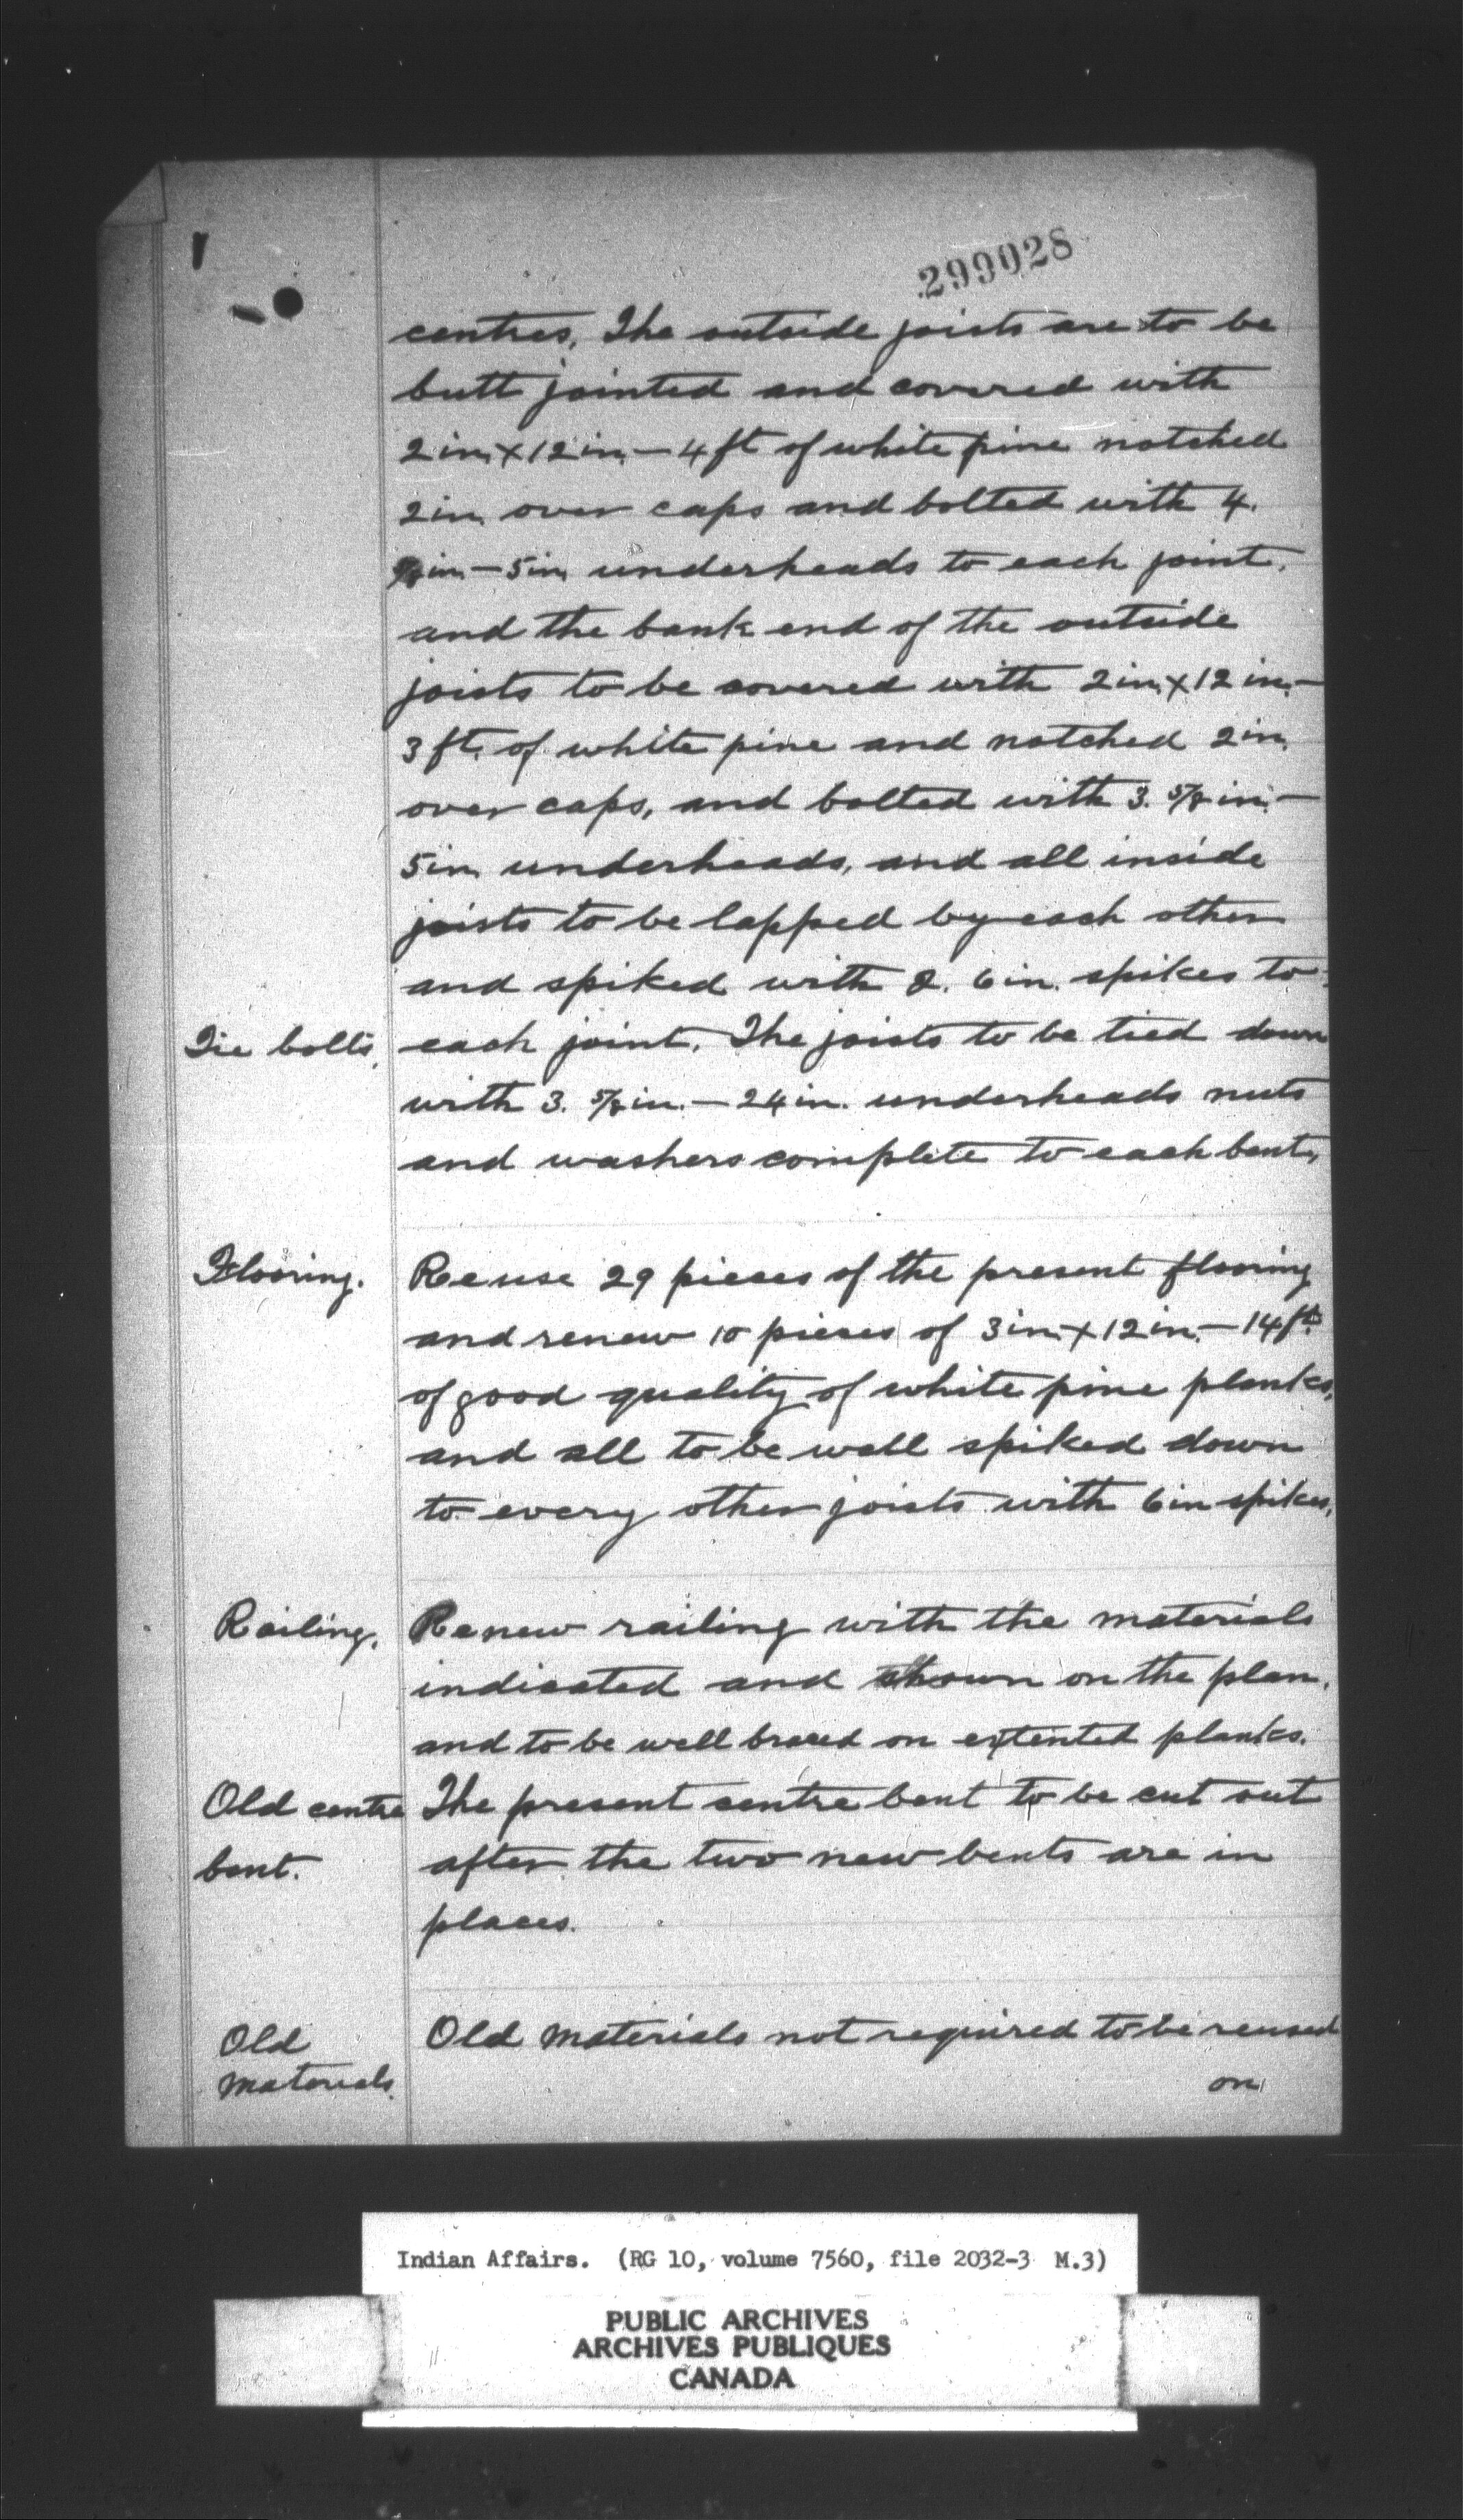 299028
centres, The outside joists are to be
butt jointed and covered with
2in. x 12in. - 4ft of white pine notched
2in. over caps and bolted with 4.
5/8in. - 5in. underheads to each joint.
and the bank end of the outside
joists to be covered with 2in. x 12in. -
3ft. of white pine and notched 2in.
over caps, and bolted with 3. 5/8in. -
5in. underheads, and all inside
joists to be lapped by each other
and spiked with 2. 6in. spikes to
Tie bolts. each joint. The joists to be tied down
with 3. 5/8in. - 24in. underheads nuts
and washers complete to each bent,
Flooring. Reuse 29 pieces of the present flooring
and renew 10 pieces of 3in. x 12in. - 14ft.
of good quality of white pine planks,
and all to be well spiked down
to every other joists with 6in spikes.
Railing. Renew railing with the materials
indicated and shown on the plan.
and to be well braced on extented planks.
Old centre The present centre bent to be cut out
bent. after the two new bents are in
places.
Old Old materials not required to be reused
materials. on
Indian Affairs. (RG 10, volume 7560, file 2032-3 M.3)
PUBLIC ARCHIVES
ARCHIVES PUBLIQUES
CANADA